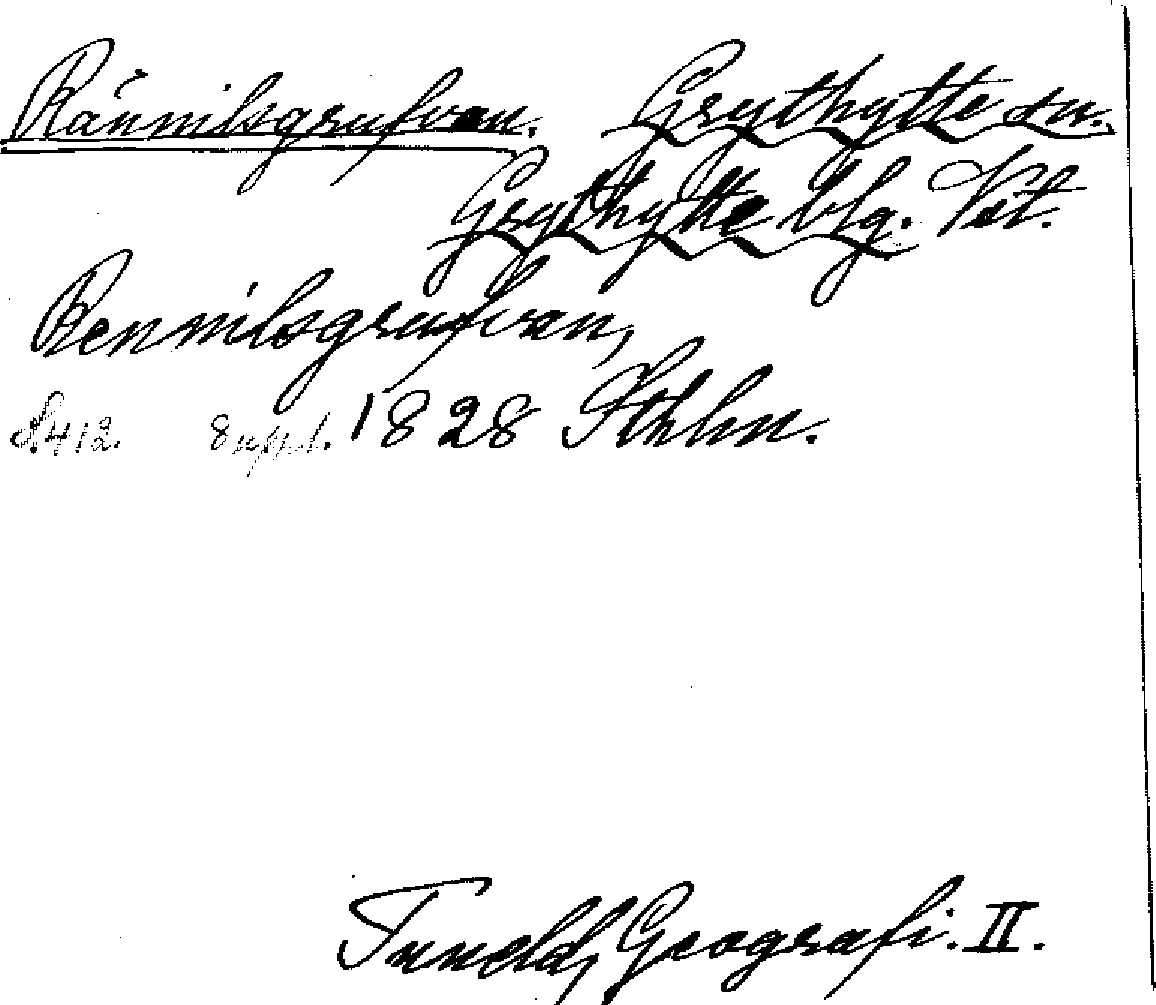 Rännilsgrufvan. Grythytte sn.
Grythytte blg. Vstl.
Rennilsgrufvan,
S. 412. 8 uppl. 1828 Sthlm.
Tuneld, Geografi. II.